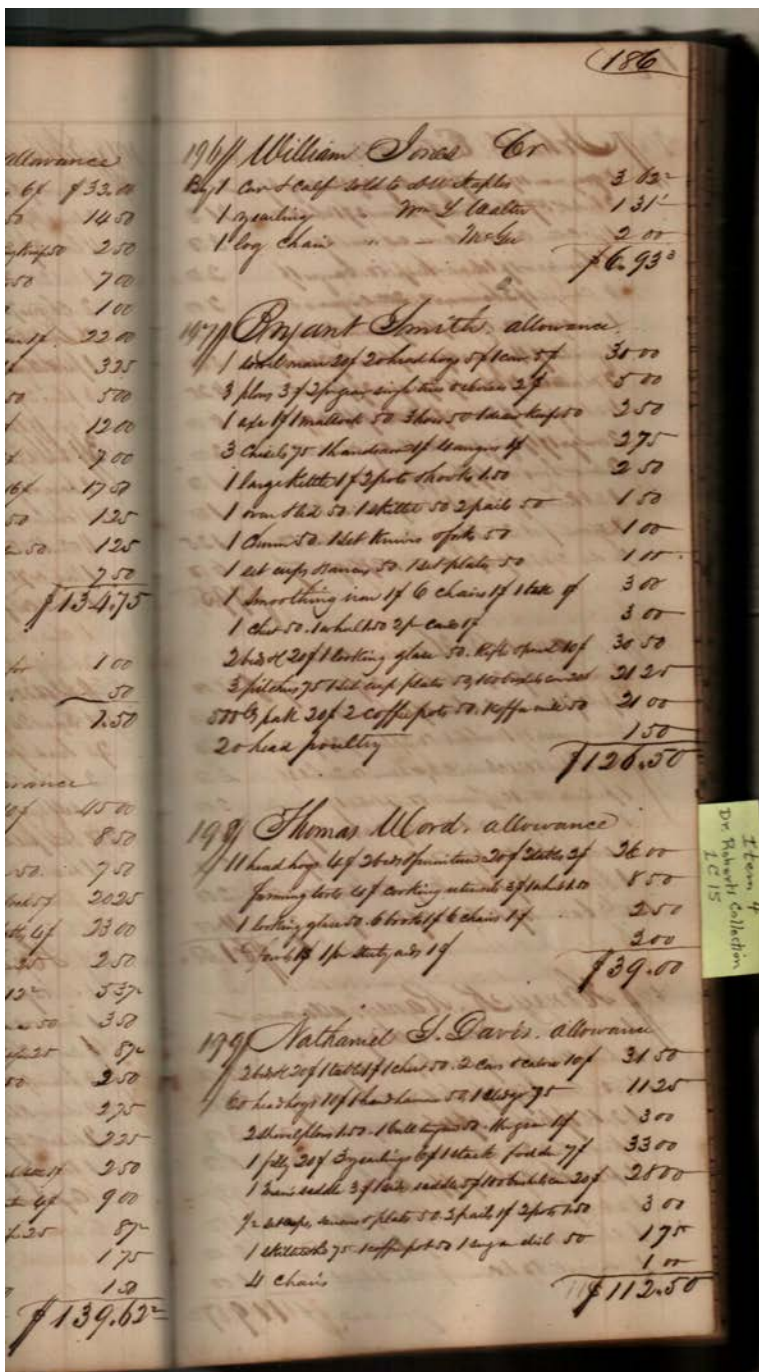 186
allowance
6$ $33.00
14 50
50 2 50
50 7 00
1 00
22 00
3 25
50 5 00
12 00
7 00
17 50
50 1 25
50 1 25
7 50
$134.75
for 1 00
50
1.50
allowance
45 00
8 50
50. 7 50
20 25
23 00
2 50
12½ 5 37½
50 3 50
25 87½
50 2 50
2 75
2 25
2 50
9 00
25 87½
1 75
1 50
$139.62½
196 William Jones Cr
By 1 Cow & Calf sold to Staples 3 62½
1 yearling " Wm L Walter 1 31¼
1 log chain " McGee 2 00
$6.93¾
197 Bryant Smith. allowance
1 sorrel mare 20$ 20 head hogs 5$ 1 cow 5$ 30 00
3 plows 3$ 2$ 5 00
1 axe 1$ 1 mattock 50 3 hoes 50 1 draw knife 50 2 50
3 Chisels 75 1 handsaw 1$ 4 augers 1$ 2 75
1 large kettle 1$ 2 pots & hooks 1.50 2 50
1 oven & lid 50. 1 skillet 50 2 pails 50 1 50
1 Churn 50. 1 Set Knives & forks 50 1 00
1 set cups & saucers 50. 1 set plates 50 1 00
1 Smoothing iron 1$ 6 chairs 1$ 1 table 1$ 3 00
1 chest 50. 1 wheel 1.50 2 pr Cards 1$ 3 00
2 beds &c 20$ 1 looking glass 50. Rifle 10$ 30 50
3 pitchers 75 1 set cup plates 50, 100 bushels corn 20$ 21 25
500 lb pork 20$ 2 coffee pots 50. Coffee mill 50 21 00
20 head poultry 1 50
$126.50
198 Thomas Word. allowance
11 head hogs 4$ 2 beds & furniture 20$ 2 tables 2$ 26 00
farming tools 4$ cooking utensils 3$ 1 wheel 1.50 8 50
1 looking glass 50. 6 books 1$ 6 chairs 1$ 2 50
1 pr Steelyards 1$ 2 00
$39.00
199 Nathaniel G. Davis. allowance
2 beds &c 20$ 1 table 1$ 1 chest 50. 2 Cows & calves 10$ 31 50
hogs 10$ 1 hand hammer 50 1 wedge 75 11 25
2 shovel plows 1.50. 1 bull tongue 50. 1$ 3 00
1 filly 20$ 3 yearlings 6$ 1 stack fodder 7$ 33 00
1 man's saddle 3$ 1 side saddle 5$ 100 bushels corn 20$ 28 00
½ set cups, saucers & plates 50. 2 pails 1$ 2 pots 1.50 3 00
1 skillet 75 1 coffee pot 50 1 sugar dish 50 1 75
4 chairs 1 00
$112.50
Item 4
Dr. Roberts Collection
IC 15